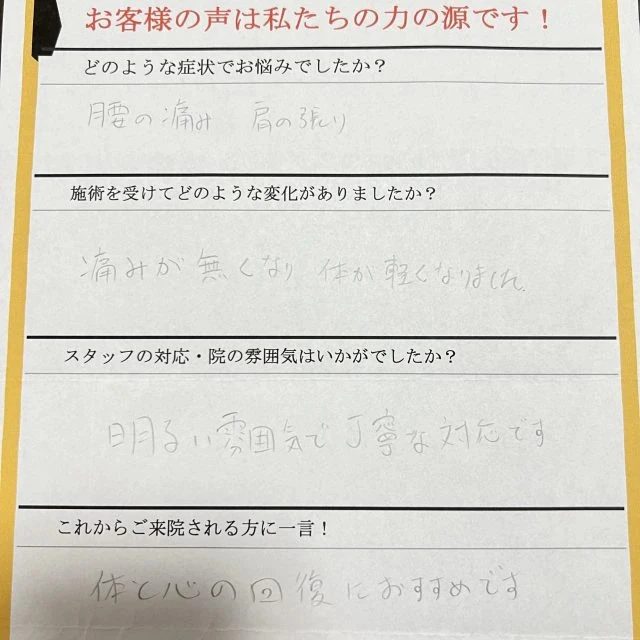 お客様の声は私たちの力の源です!
どのような症状でお悩みでしたか?
腰の痛み 肩の張り
施術を受けてどのような変化がありましたか?
痛みが無くなり 体が軽くなりました。
スタッフの対応・院の雰囲気はいかがでしたか?
明るい雰囲気で丁寧な対応です
これからご来院される方に一言!
体と心の回復におすすめです